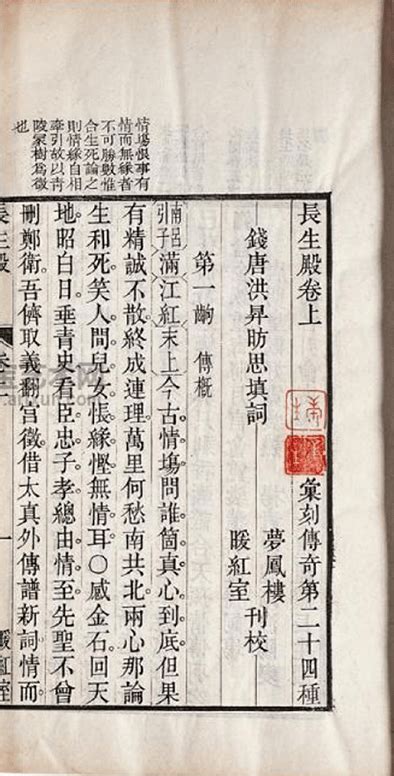 情塲恨事有
情而無緣者
不可勝數惟
合生死論之
則情緣自相
牽引故以青
陵冢樹爲徵
也
長生殿卷上
彙刻傳奇第二十四種
錢唐洪昇昉思填詞
夢鳳樓
暖紅室
刊校
第一齣 傳概
南呂引子滿江紅末上今古情塲問誰箇眞心到底但果
有精誠不散終成連理萬里何愁南共北兩心那論
生和死笑人間兒女悵緣慳無情耳○感金石回天
地昭白日垂青史看臣忠子孝總由情至先聖不曾
刪鄭衛吾儕取義翻宮徵借太眞外傳譜新詞情而
長生殿
卷上
一
暖紅室